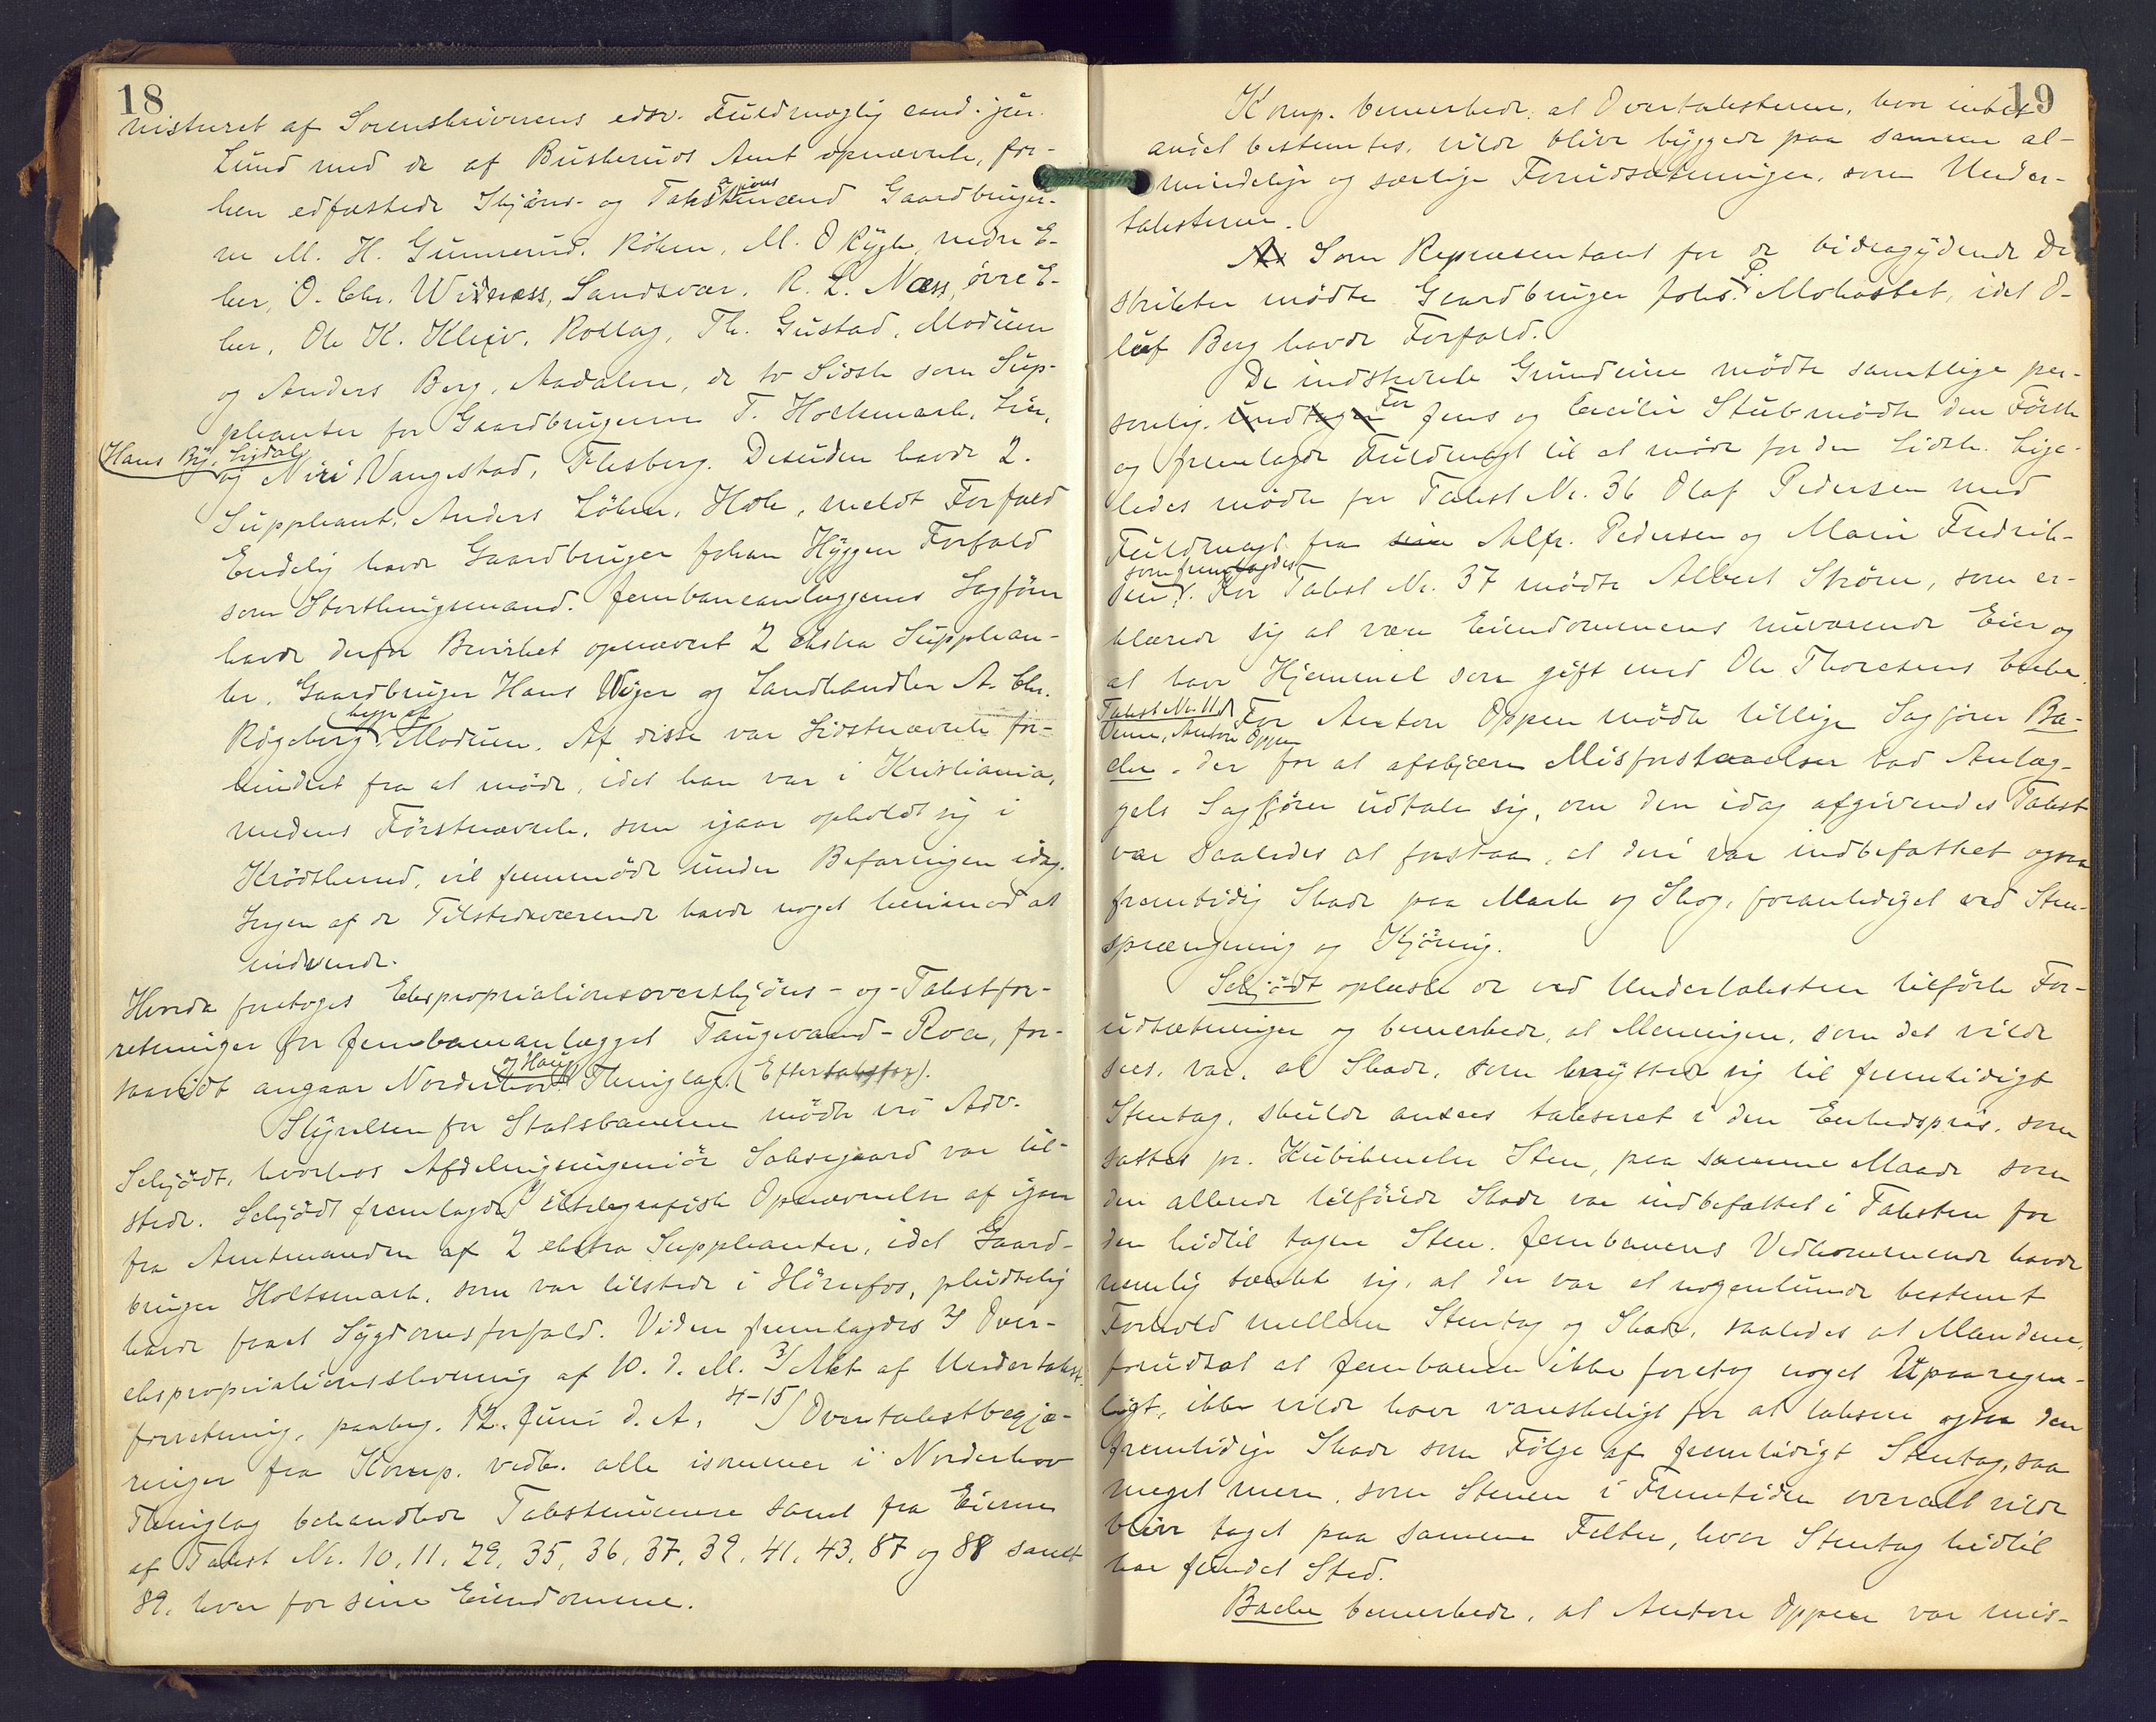 18
nistreret af Sorenskriverens edsv. Fuldmægtig cand. jur.
Lund med de af Buskeruds Amt opnævnte, for-
hen edfæstede Skjøns- og Takstationsmænd Gaardbruger-
ne M. H. Gunnerud, Røken, M. O Rygh, nedre E-
ker, O. Chr. Wisness, Sandsvær, R. L. Næss, øvre E-
ker, Ole K. Kleiv, Rollag, Th. Gustad, Modum
og Anders Berg, Aadalen, de to Sidste som Sup-
pleanter for Gaardbrugerne T. Holtsmark, Lier,
Hans By, Sigdal
og Niri Vangestad, Flesberg. Desuden havde 2.
Suppleant, Anders Løken, Hole, meldt Forfald
Endelig havde Gaardbruger Johan Hyggen Forfald
som Storthingsmand. Jernbaneanlæggenes Sagfører
havde derfor Bevirket opnævnt 2 ekstra Supplean-
ter, Gaardbruger Hans Wiger og Landhandler A. Chr.
Røgeberg, begge af Modum. Af disse var Sidstnævnte for-
hindret fra at møde, idet han var i Kristiania,
medens Førstnævnte, som igaar opholdt sig i
Krødsherred, vil fremmøde under Befaringen idag.
Ingen af de Tilstedeværende havde noget herimod at
indvende.
Hvorda foretoges Ekspropriationsoverskjøns- og -Takstfor-
retninger for Jernbaneanlægget Taugevand-Roa, for-
saavidt angaar Norderhov og Haug Thinglag (Eftertakstfor).
Styrelsen for Statsbanerne mødte ved Adv.
Schjødt, hvorhos Afdelingsingeniør Saksegaard var til-
stede. Schjødt fremlagde 1) telegrafisk Opnævnelse af igaar
fra Amtmanden af 2 ekstra Suppleanter, idet Gaard-
bruger Holtsmark, som var tilstede i Hønefos, pludselig
havde faaet Sygdomsforfald. Viden fremlagdes 2) Over-
ekspropriationsstevning af 10. d. M. 3) Akt af Undertakst-
forretning, paabeg. 12. Juni d. A. 4-15) Overtakstbegjæ-
ringer fra Komp. vedk. alle isommer i Norderhov
Thinglag behandlede Takstnumere samt fra Eierne
af Takst No. 10, 11, 29, 35, 36, 37, 39, 41, 43, 87 og 88 samt
89, hver for sine Eiendomme.
19
Komp. bemerkede, at Overtaksterne, hvor intet
andet bestemtes, vilde blive byggede paa samme al-
mindelige og særlige Forudsætninger, som Under-
taksterne.
Som Repræsentant for de bidragydende Di-
strikter mødte Gaardbruger Johs. P. Mohastet, idet O-
luf Berg havde Forfald.
De indstevnte Grundeiere mødte samtlige per-
sonlig. undtagen For Jens og Cecilie Stub mødte den Første
og fremlagde Fuldmagt til at møde for den Sidste. Lige-
ledes mødte for Takst No. 36 Olaf Pedersen med
Fuldmagt fra sin Alfr. Pedersen og Marie Fredrik-
sen, som fremlagdes. For Takst No. 37 mødte Albert Strøm, som er-
klærede sig at være Eiendommens nuværende Eier og
at have Hjemmel som gift med Ole Thoresens Enke.
Takst No. 11
Anton Oppen
For Anton Oppen mødte tillige Sagfører Ba-
che, der for at afskjære Misforstaaelser bad Anlæg-
gets Sagfører udtale sig, om den idag afgivendes Takst
var saaledes at forstaa, at deri var indbefattet ogsaa
fremtidig Skade paa Mark og Skog, foranlediget ved Sten-
sprængning og Kjøring.
Schjødt oplæste de ved Undertaksten tilførte For-
udsætninger og bemerkede, at Meningen, som det vilde
sees, var, at Skade, som knyttede sig til fremtidigt
Stentag, skulde ansees takseret i den Enhedspris, som
sattes pr. Kubikmeter Sten, paa samme Maade som
den allerede tilføiede Skade var indbefattet i Taksten for
den hidtil tagne Sten. Jernbanens Vedkommende havde
nemlig tænkt sig, at der var et nogenlunde bestemt
Forhold mellem Stentag og Skade, saaledes at Mændene,
forudsat at Jernbanen ikke foretog noget Upaaregne-
ligt, ikke vilde have vanskeligt for at taksere ogsaa den
fremtidige Skade som Følge af fremtidigt Stentag, saa
meget mere, som Stenen i Fremtiden overalt vilde
blive taget paa samme Felter, hvor Stentag hidtil
har fundet Sted.
Bache bemerkede, at Anton Oppen var mis-